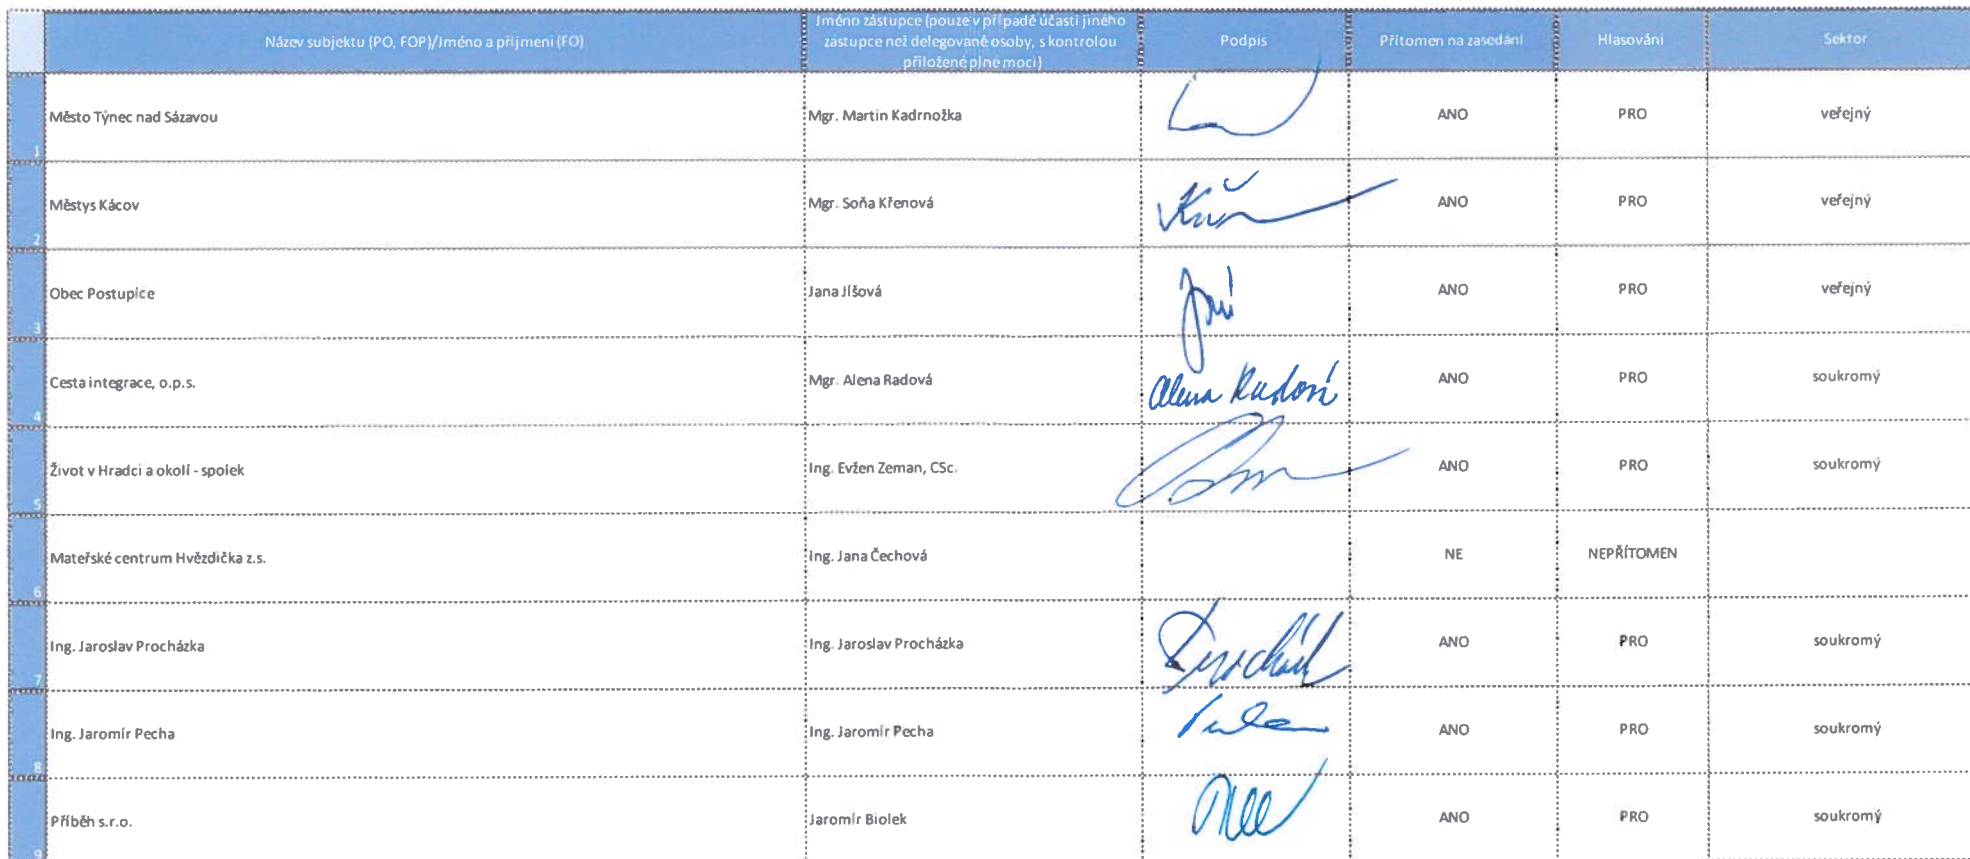 Název subjektu (PO, FOP)/Jméno a příjmení (FO)
Jméno zástupce (pouze v případě účasti jiného
zástupce než delegované osoby, s kontrolou
přiložené plné moci)
Podpis
Přítomen na zasedání
Hlasování
Sektor
1 Město Týnec nad Sázavou Mgr. Martin Kadrnožka ANO PRO veřejný
2 Městys Kácov Mgr. Soňa Křenová ANO PRO veřejný
3 Obec Postupice Jana Jíšová ANO PRO veřejný
4 Cesta integrace, o.p.s. Mgr. Alena Radová Alena Radová ANO PRO soukromý
5 Život v Hradci a okolí - spolek Ing. Evžen Zeman, CSc. ANO PRO soukromý
6 Mateřské centrum Hvězdička z.s. Ing. Jana Čechová NE NEPŘÍTOMEN
7 Ing. Jaroslav Procházka Ing. Jaroslav Procházka ANO PRO soukromý
8 Ing. Jaromír Pecha Ing. Jaromír Pecha ANO PRO soukromý
9 Příběh s.r.o. Jaromír Biolek ANO PRO soukromý